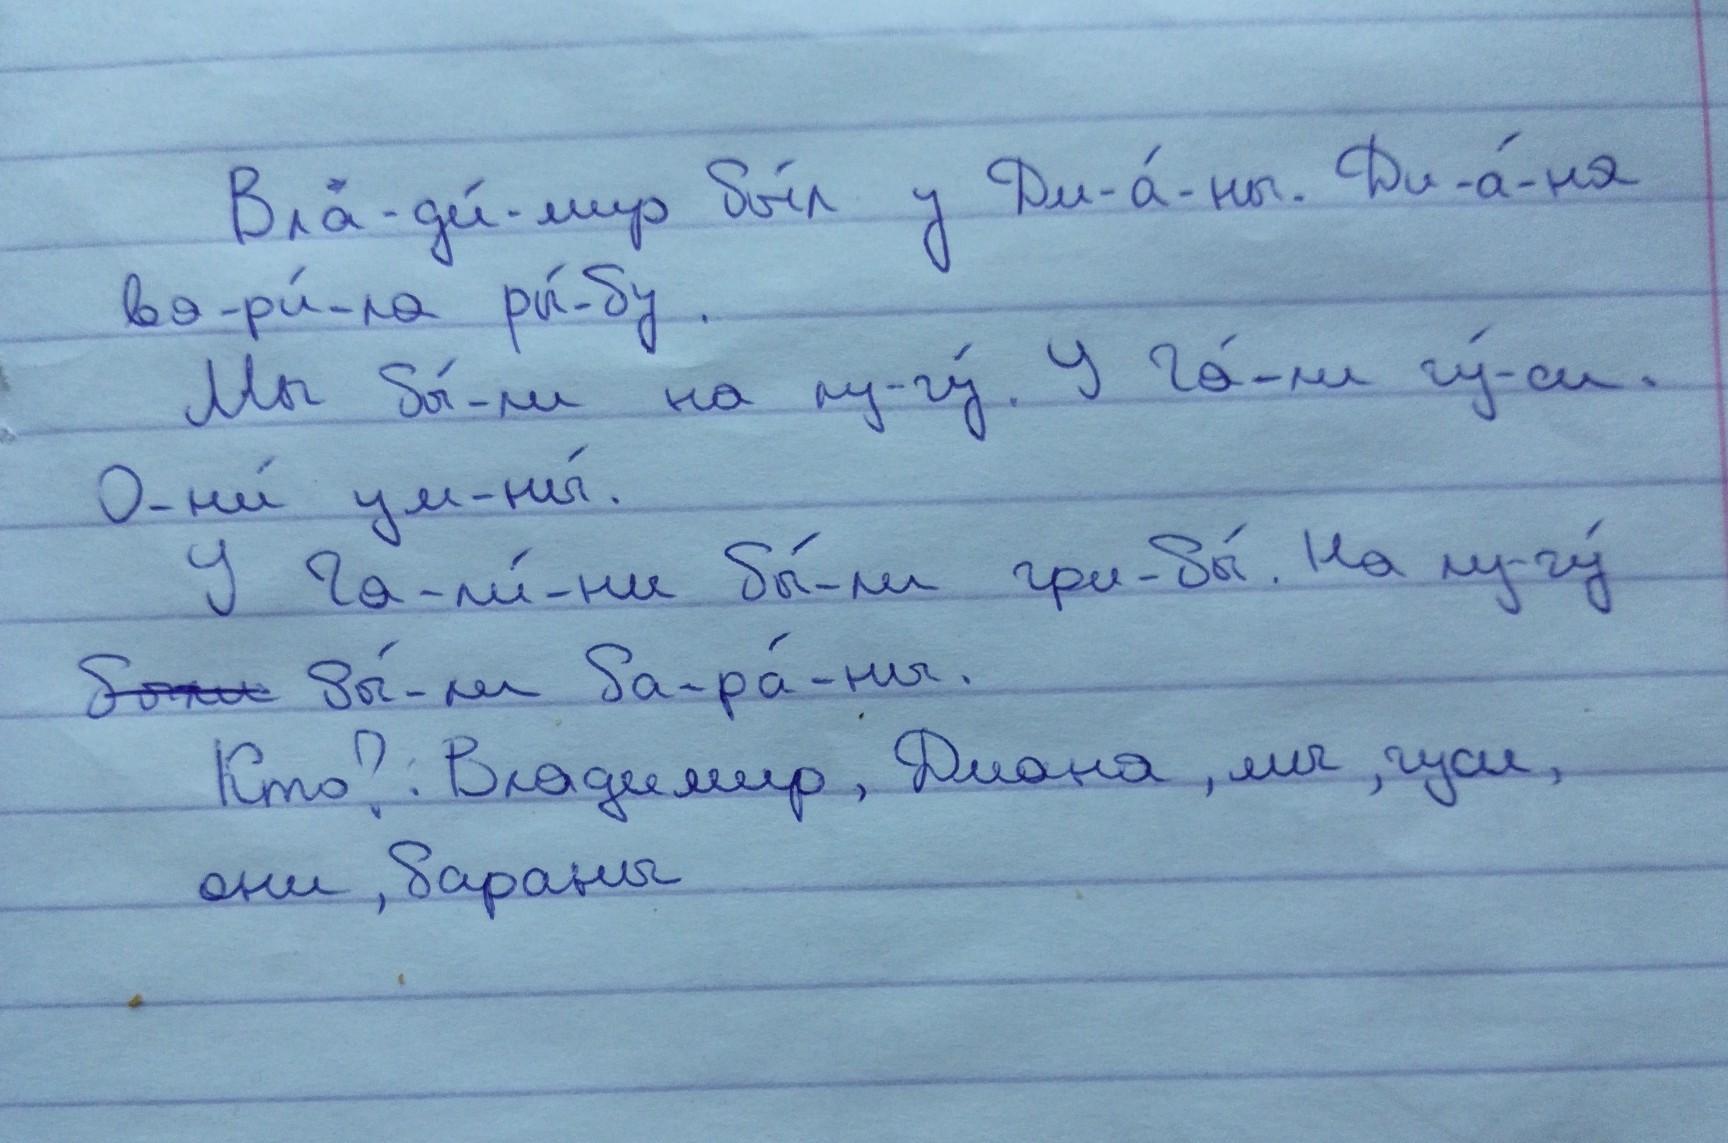 Вла-ди́-мир бы́л у Ди-а́-ны. Ди-а́-на
ва-ри́-ла ры́-бу.
Мы бы́-ли на лу-гу́. У Га́-ли гу́-си.
О-ни́ ум-ны́.
У Га-ли́-ни бы́-ли гри-бы́. На лу-гу́
бы́-ли ба-ра́-ны.
Кто?: Владимир, Диана, мы, гуси,
они, бараны